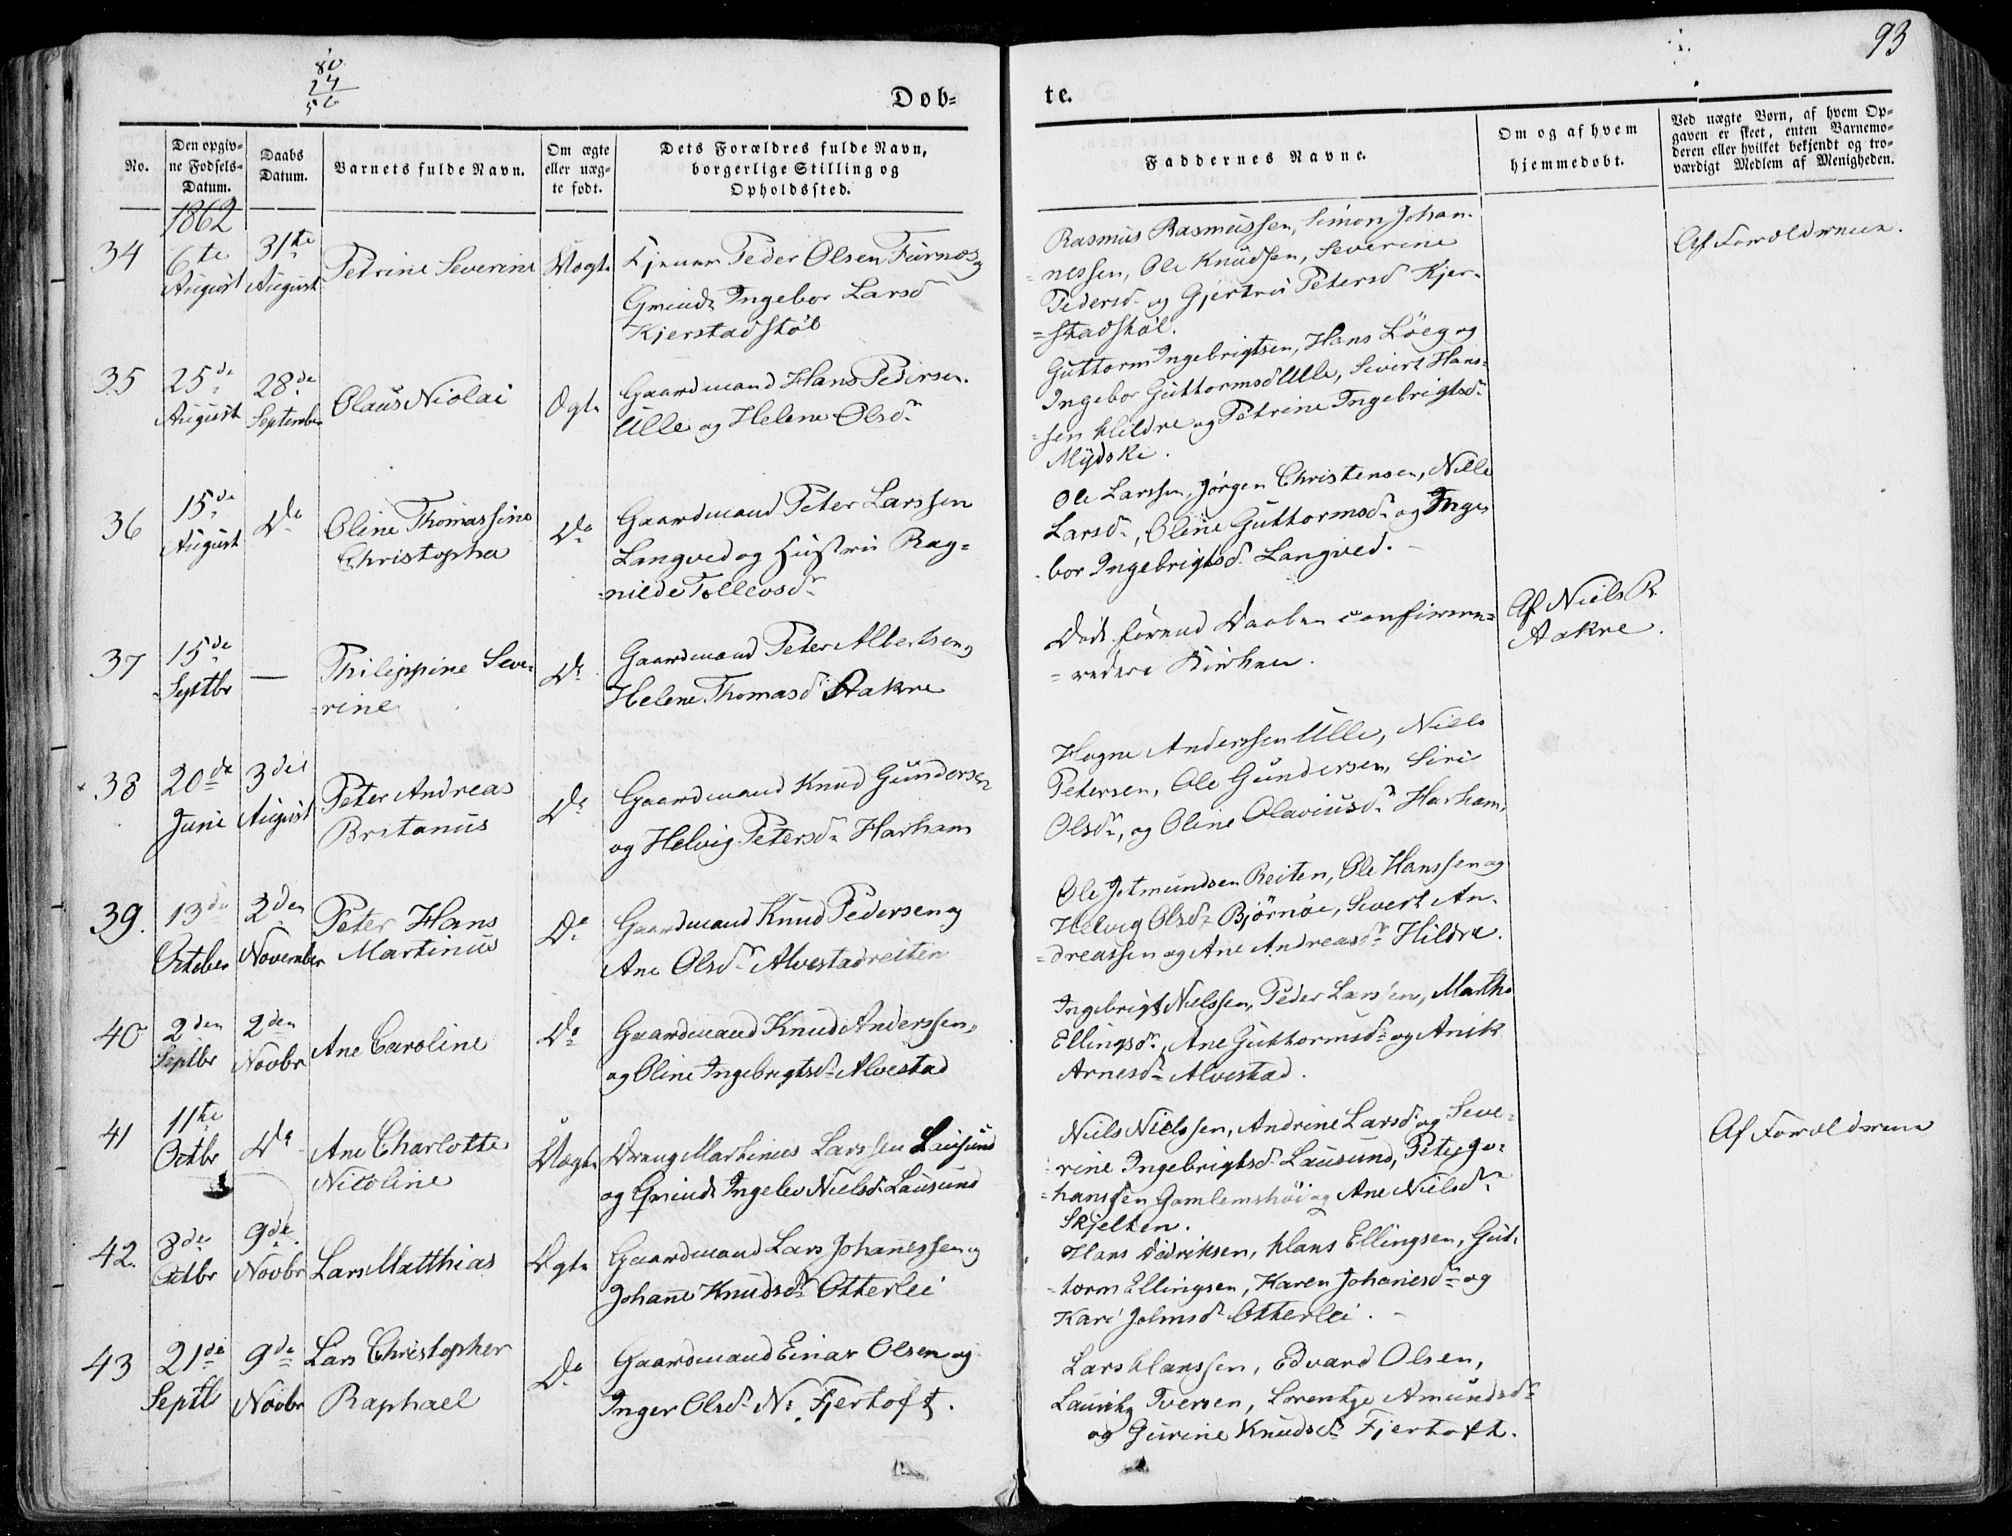 93
80
24
56
Døb=
te.
No.
Den opgiv=
ne Fødsels=
Datum.
Daabs
Datum.
Barnets fulde Navn.
Om ægte
eller uæg=
te født.
Dets Forældres fulde Navn,
borgerlige Stilling og
Opholdssted.
Faddernes Navne.
Om og af hvem
hjemmedøbt.
Ved uægte Børn, af hvem Op=
gaven er skeet, enten Barnemo=
deren eller hvilket bekjendt og tro=
værdigt Medlem af Menigheden.
1862
34
6te
August
31te
August
Petrine Severine
Uægte
Peder Olsen Furnæs og
Gmusk Ingebor Larsd
Kjerstadstøl
Rasmus Rasmussen, Simon Johan-
=nessen, Ole Knudsen, Severine
Pedersd. og Gjertrü Petersd Kjer-
=stadstøl.
Af Forældrene.
35
25de
August
28de
September
Olaus Nicolai
Ægte
Gaardmand Hans Pedersen
Ulle og Helene Olsdr
Guttorm Ingebrigtsen, Hans Löeg og
Ingebor Guttormsd Ulle, Sivert Hans=
=sen Hildre og Petrine Ingebrigtsd.
Mÿdske.
36
15de
August
Do
Oline Thomassine
Christopha
Do
Gaardmand Peter Larssen
Langved og Hustru Rag=
=nilde Tollevsdr
Ole Larsen, Jørgen Christensen, Nille
Larsdr, Oline Guttormsdr og Inge
bor Ingebrigtsd. Langved.
37
15de
Septbr
—
Philippine Seve-
=rine
Do
Gaardmand Peter Albertsen og
Helene Thomasd Aakre
Død førend Daaben confirme=
=redes i Kirken.
Af Niels R
Aakre.
38
20de
Juni
3die
August
Peter Andreas
Britanus
Do
Gaardmand Knud Gundersen
og Helvig Petersdr Harham
Hagne Anderssen Ulle, Niels
Petersen, Ole Gundersen, Siri
Olsdr, og Oline Olaviusdr Harham,
39.
13de
October
2den
November
Peter Hans
Martinus
Do
Gaardmand Knud Pedersen og
Ane Olsdr Alvestadreiten
Ole Jetmundsen Reiten, Ole Hanssen og
Helvig Olsdr Bjørnøe, Sivert An-
=dreassen og Ane Andreasdr Hildre.
40
2den
Septbr
2den
Novbr
Ane Caroline
Do
Gaardmand Knud Anderssen
og Oline Ingebrigtsdr Alvestad
Ingebrigt Nielssen, Peder Larssen, Marthe
Ellingsdr, Ane Guttormsdr og Anik
Arnesdr Alvestad.
41
11te
Octbr
Do
Ane Charlotte
Nicoline
Uægte
Dreng Martinus Larssen Lausund
og Ingelev Nielsd. Lausund
Niels Nielssen, Andrine Larsd. og Seve=
=rine Ingebrigtsd. Lausund, Peter Jo=
=hanssen Gamlemshøi og Ane Nielsdr
Skjelten.
Af Forældrene
42.
8de
Octbr
9de
Novbr
Lars Matthias
Ægte
Gaardmand Lars Johanessen og
Johane Knudsdr Otterlei
Hans Didriksen, Hans Ellingsen, Gut-
=torm Ellingsen, Karen Johanesdr og
Kari Jolmsdr Otterlei.
43
21de
Septb
9de
Novbr
Lars Christopher
Raphael
Do
Gaardmand Einar Olsen og
Inger Olsdr N: Fjertoft.
Lars Hanssen, Edvard Olsen,
Lauritz Iversen, Lorentze Amundsdr
og Gurine Knudsdr Fjertoft.